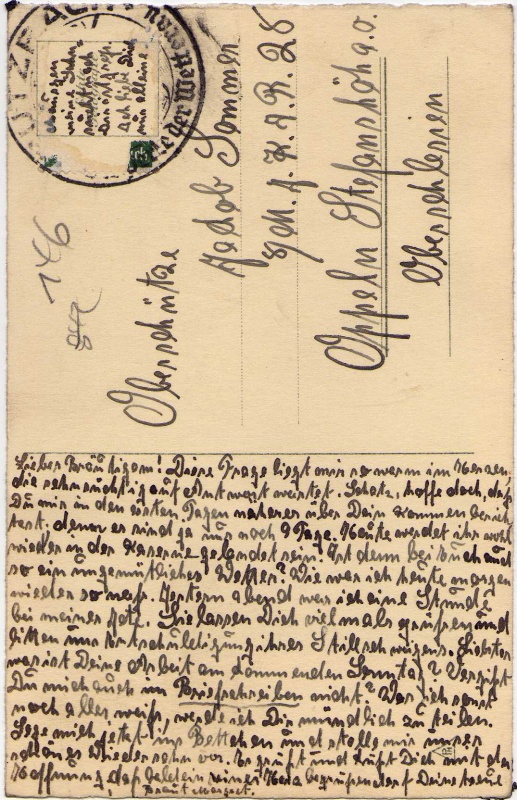 Oberschütze
Jakob Sommer
Oppeln Stefanshöh a.o.
Oberschlesien
146
Lieber Bräutigam! Diese Frage liegt mir so warm im Herzen,
die sehnsüchtig auf Antwort wartet. Schatz, hoffe doch, daß
Du mir in den ersten Tagen näheres über Dein Kommen berich-
test. denn es sind ja nur noch 9 Tage. Heute werdet ihr wohl
wieder in der Kaserne gelandet sein. Ist denn bei Euch auch
so ein ungemütliches Wetter? Wie war ich heute morgen
wieder so naß. Gestern abend war ich eine Stunde
bei meiner Sie lassen Dich vielmals grüßen und
bitten um Entschuldigung ihres Stillschweigens. Liebster
was ist Deine Arbeit am kommenden Sonntag? Vergißt
Du mich auch im Briefschreiben nicht? Was ich sonst
noch alles weiß, werde ich Dir mündlich zu teilen.
Lege mich jetzt ins Bettchen und stelle mir unser
schönes Wiedersehn vor. Es grüßt und küßt Dich mit der
Hoffnung, daß Du Deine treue
Braut Margret.